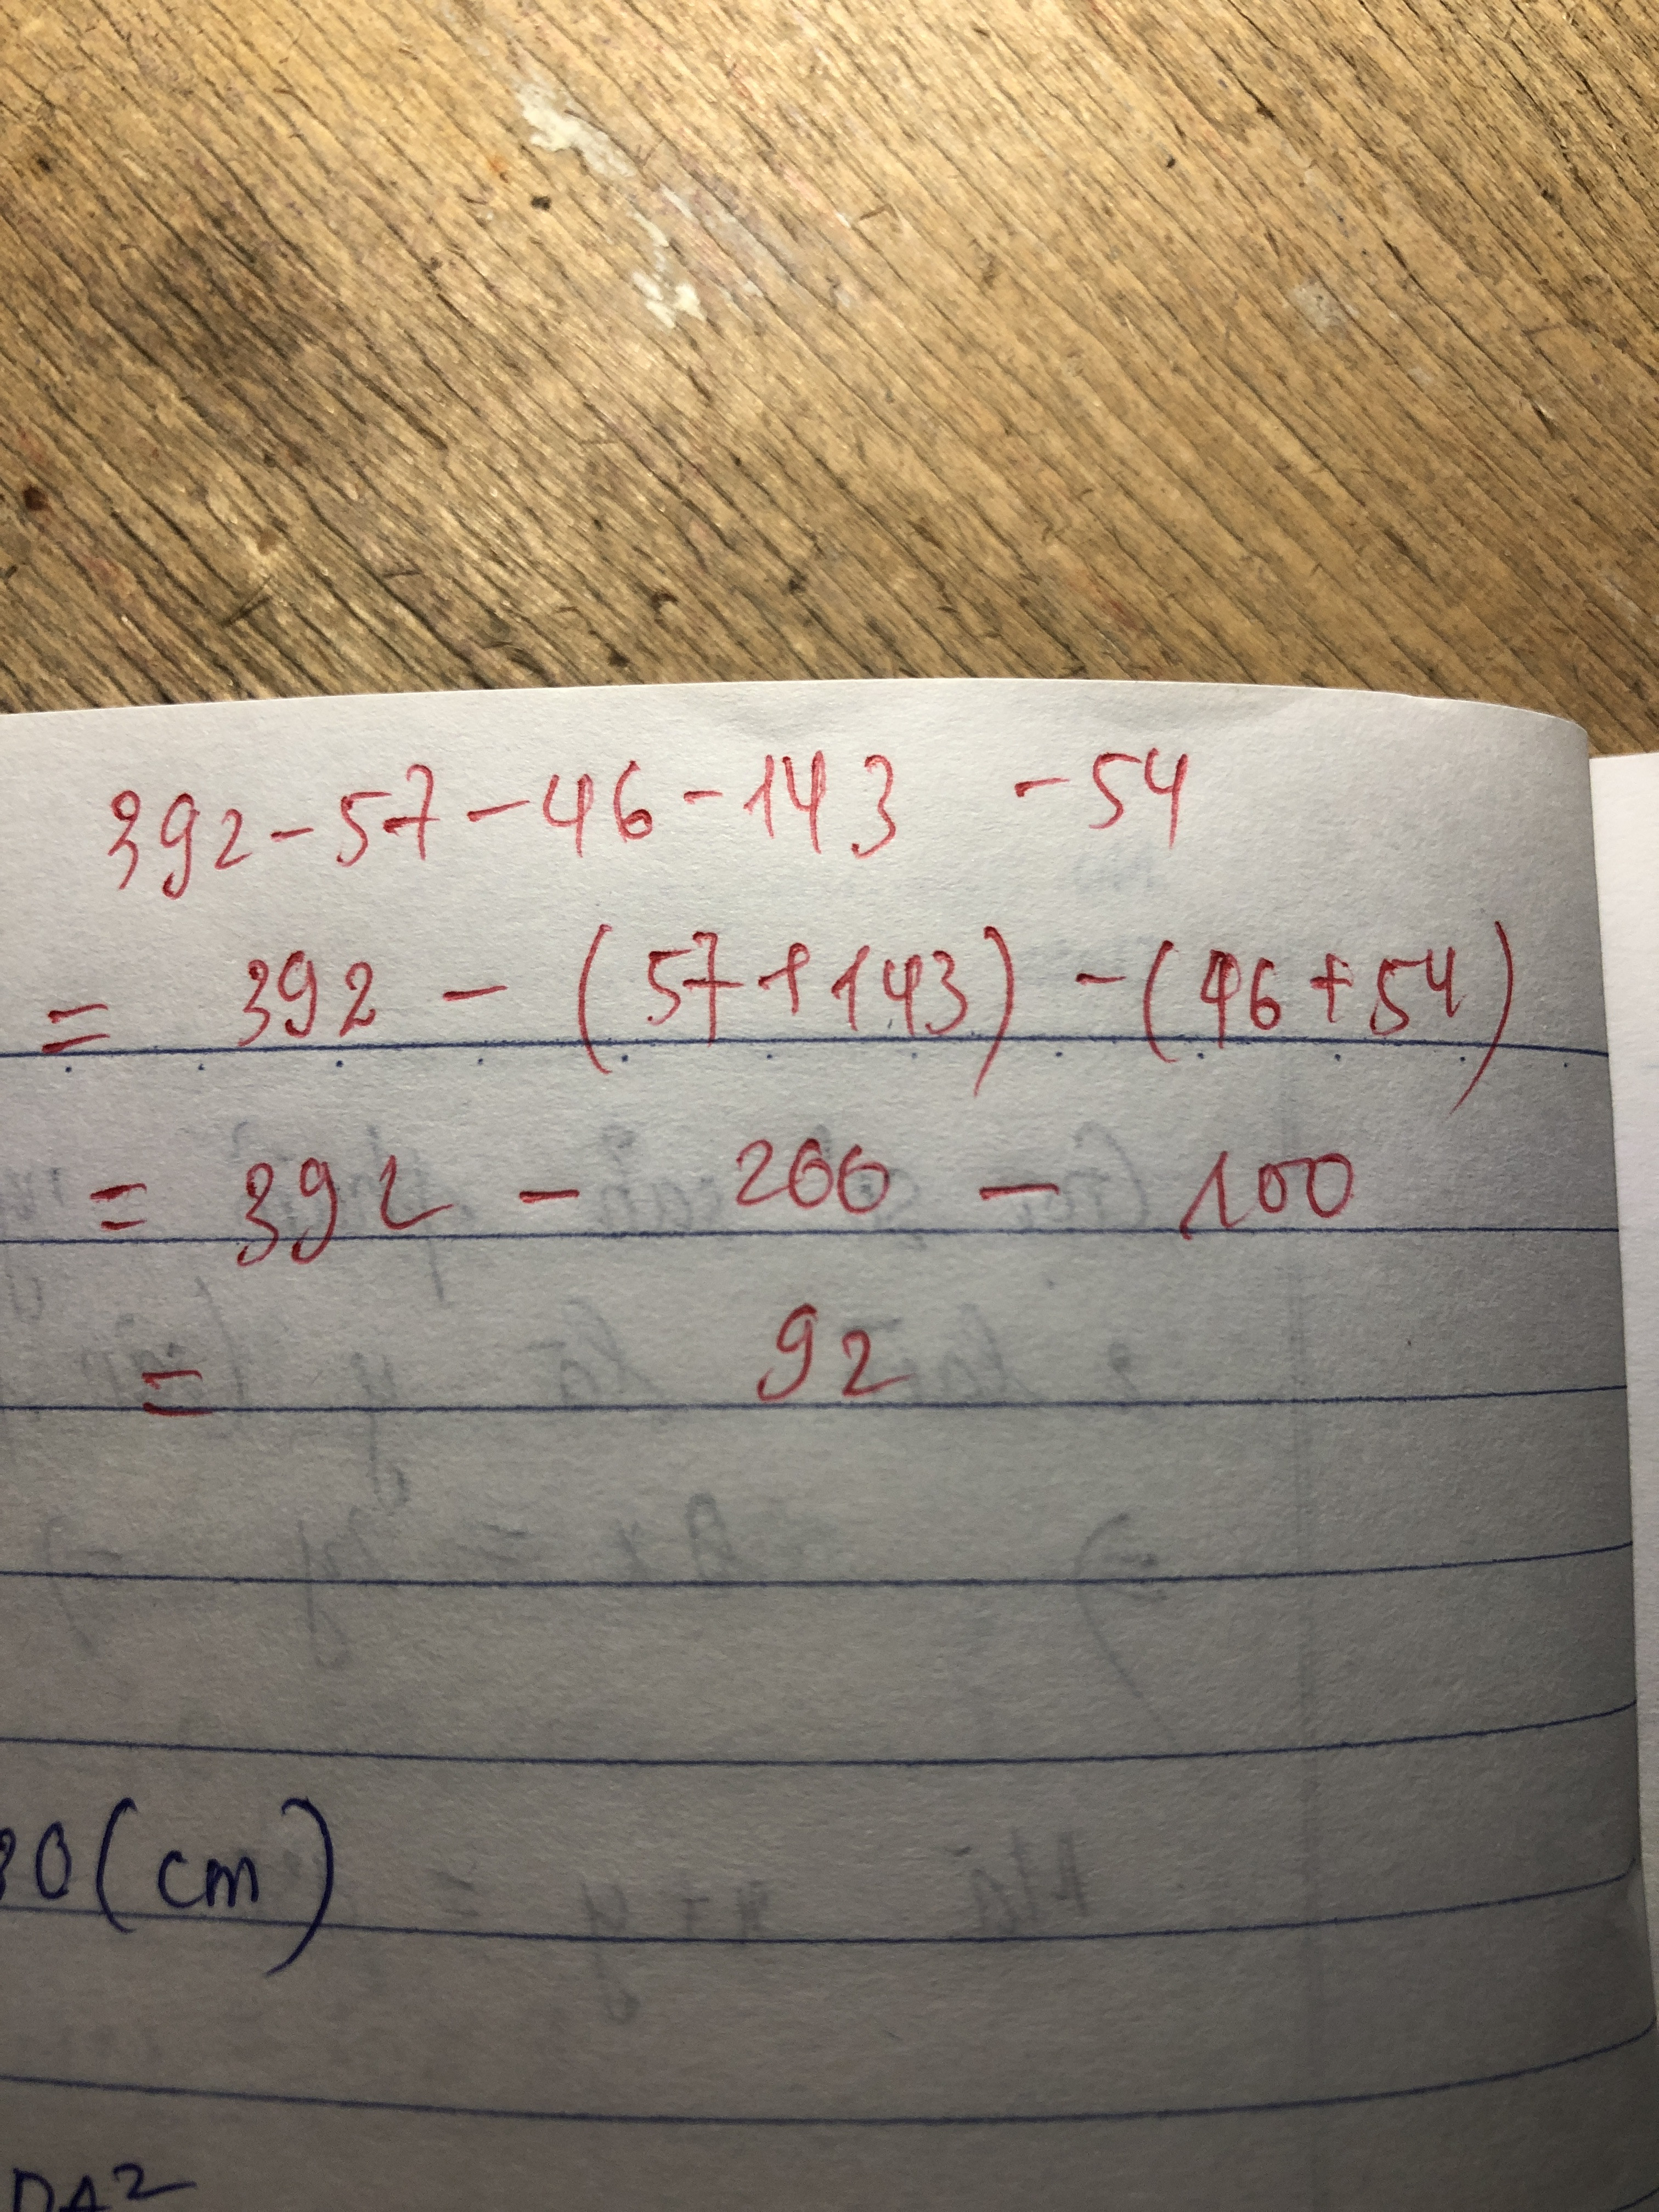 392 - 57 - 46 - 143 - 54
= 392 - (57 + 143) - (46 + 54)
= 392 - 200 - 100
= 92
30 (cm)
DA2